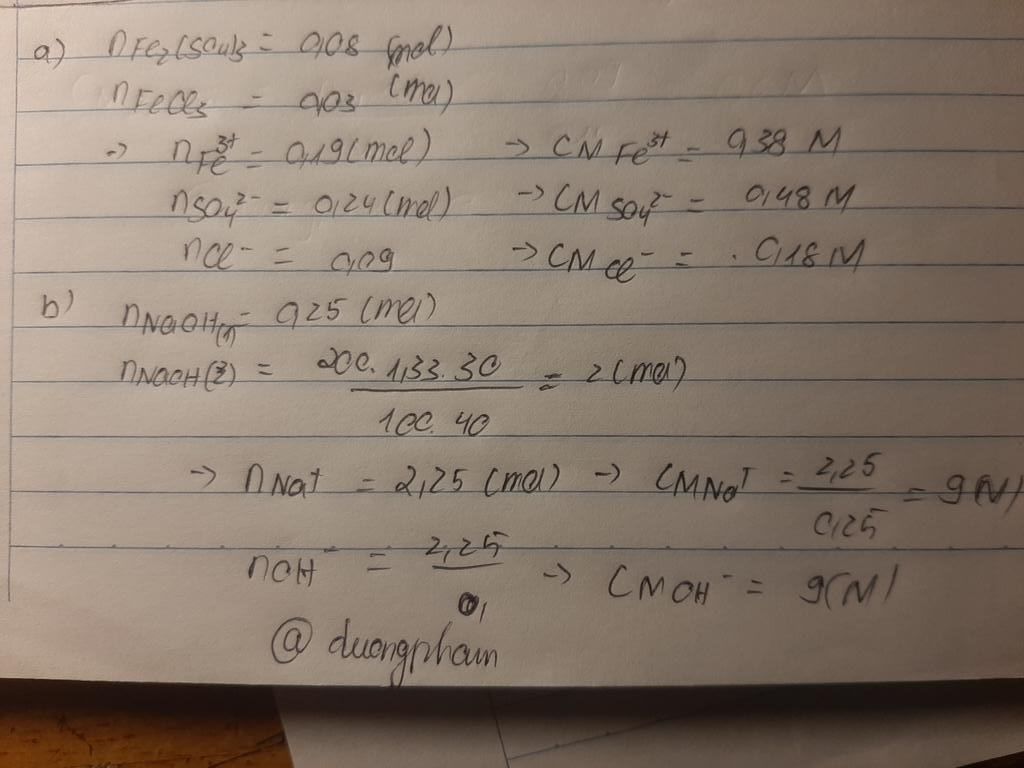 a) nFe2(SO4)3 = 0,08 (mol)
nFeCl3 = 0,03 (mol)
-> nFe3+ = 0,19 (mol) -> CM Fe3+ = 0,38 M
nSO4 2- = 0,24 (mol) -> CM SO4 2- = 0,48 M
nCl- = 0,09 -> CM Cl- = 0,18 M
b) nNaOH(1) = 0,25 (mol)
nNaOH(2) = 200.1,33.30 / 100.40 = 2 (mol)
-> nNa+ = 2,25 (mol) -> CMNa+ = 2,25 / 0,25 = 9 (M)
nOH- = 2,25 -> CM OH- = 9 (M)
@ duongpham